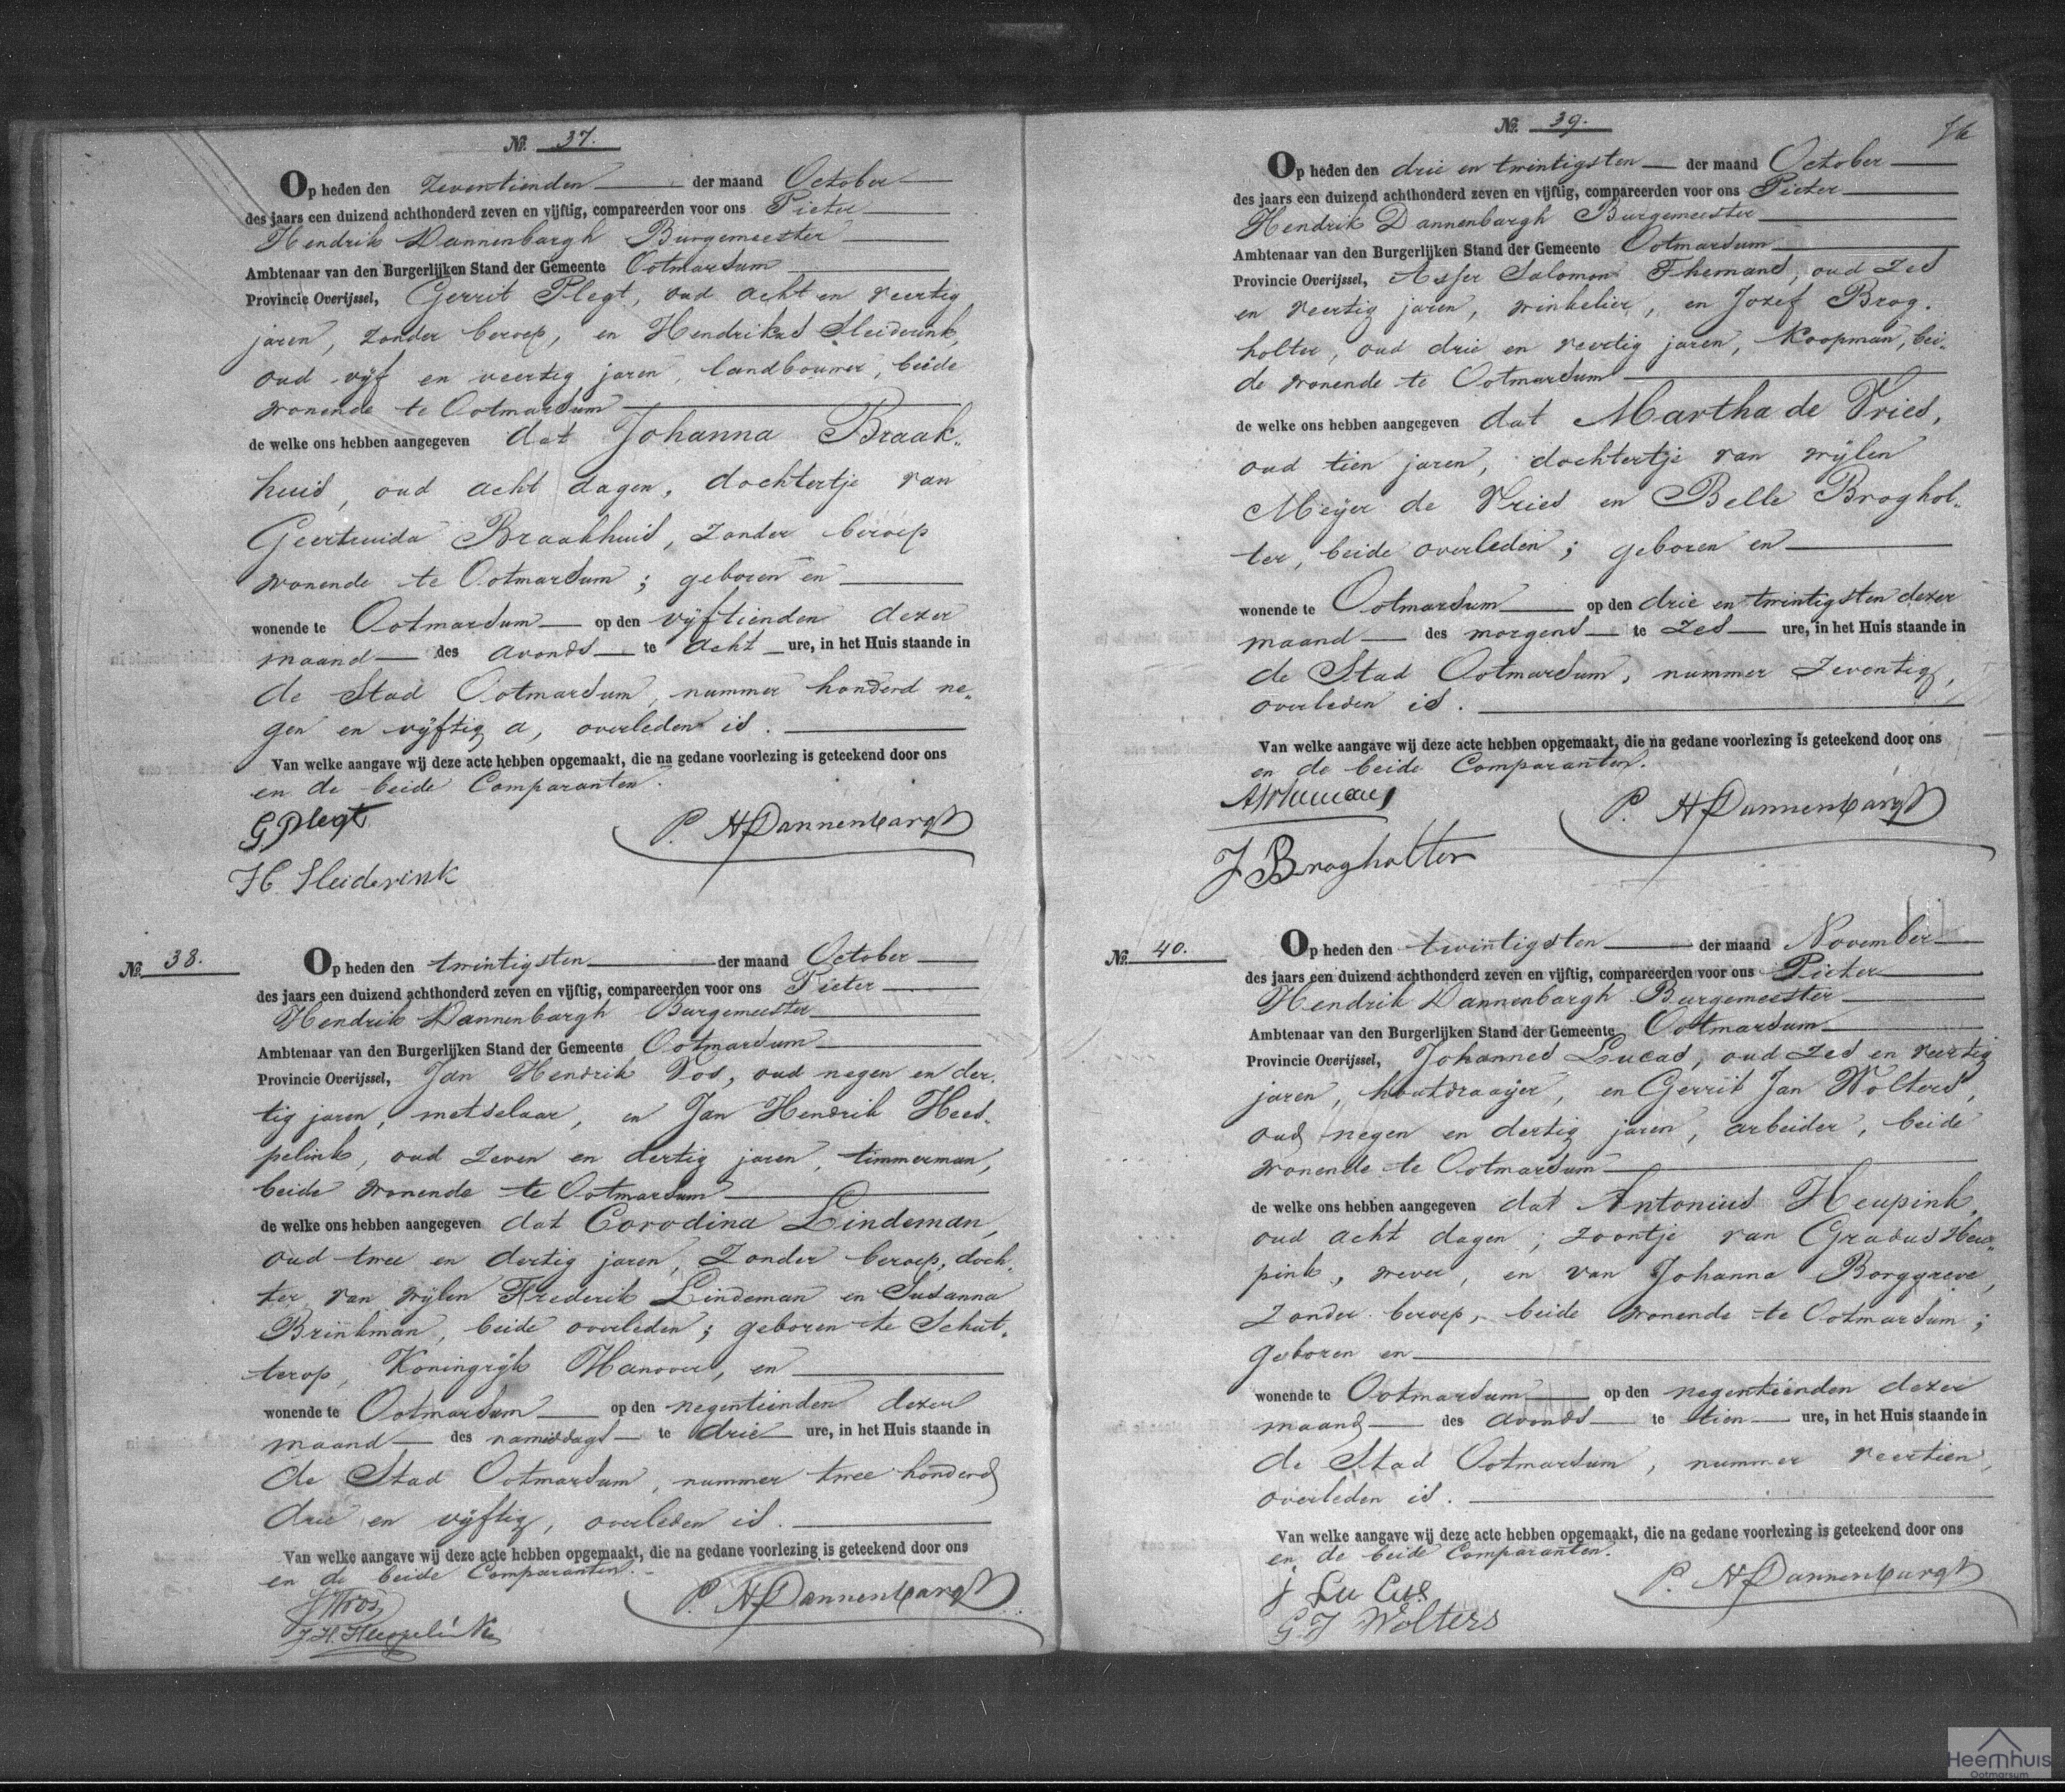 № 37.
Op heden den zeventienden der maand October
des jaars een duizend achthonderd zeven en vijftig, compareerden voor ons Pieter
Hendrik Dannenbargh Burgemeester
Ambtenaar van den Burgerlijken Stand der Gemeente Ootmarsum
Provincie Overijssel, Gerrit Plegt, oud acht en veertig
jaren, zonder beroep, en Hendrikus Sleiderink,
oud vijf en veertig jaren, landbouwer, beide
wonende te Ootmarsum
de welke ons hebben aangegeven dat Johanna Braak-
huis, oud acht dagen, dochtertje van
Geertruida Braakhuis, zonder beroep
wonende te Ootmarsum; geboren en
wonende te Ootmarsum op den vijftienden dezer
maand des avonds te acht ure, in het Huis staande in
de Stad Ootmarsum, nummer honderd ne-
gen en vijftig a, overleden is.
Van welke aangave wij deze acte hebben opgemaakt, die na gedane voorlezing is geteekend door ons
en de beide Comparanten.
G Plegt
P. H Dannenbargh
H. Sleiderink
№ 38.
Op heden den twintigsten der maand October
des jaars een duizend achthonderd zeven en vijftig, compareerden voor ons Pieter
Hendrik Dannenbargh Burgemeester
Ambtenaar van den Burgerlijken Stand der Gemeente Ootmarsum
Provincie Overijssel, Jan Hendrik Vos, oud negen en der-
tig jaren, metselaar, en Jan Hendrik Hees-
pelink, oud zeven en dertig jaren, timmerman,
beide wonende te Ootmarsum
de welke ons hebben aangegeven dat Corodina Lindeman,
oud twee en dertig jaren, zonder beroep, doch-
ter van wijlen Frederik Lindeman en Susanna
Brinkman, beide overleden; geboren te Schut-
terop, Koningrijk Hanover, en
wonende te Ootmarsum op den negentienden dezer
maand des namiddags te drie ure, in het Huis staande in
de Stad Ootmarsum, nummer twee honderd
drie en vijftig, overleden is.
Van welke aangave wij deze acte hebben opgemaakt, die na gedane voorlezing is geteekend door ons
en de beide Comparanten.
P. H Dannenbargh
№ 39.
Op heden den drie en twintigsten der maand October
des jaars een duizend achthonderd zeven en vijftig, compareerden voor ons Pieter
Hendrik Dannenbargh Burgemeester
Ambtenaar van den Burgerlijken Stand der Gemeente Ootmarsum
Provincie Overijssel, Asser Salomon Themans, oud zes
en veertig jaren, winkelier, en Jozef Brog-
holter, oud drie en veertig jaren, Koopman, bei-
de wonende te Ootmarsum
de welke ons hebben aangegeven dat Martha de Vries,
oud tien jaren, dochtertje van wijlen
Meijer de Vries en Belle Broghol-
ter, beide overleden; geboren en
wonende te Ootmarsum op den drie en twintigsten dezer
maand des morgens te zes ure, in het Huis staande in
de Stad Ootmarsum, nummer zeventig,
overleden is.
Van welke aangave wij deze acte hebben opgemaakt, die na gedane voorlezing is geteekend door ons
en de beide Comparanten.
P. H Dannenbargh
J Brogholter
№ 40.
Op heden den twintigsten der maand November
des jaars een duizend achthonderd zeven en vijftig, compareerden voor ons Pieter
Hendrik Dannenbargh Burgemeester
Ambtenaar van den Burgerlijken Stand der Gemeente Ootmarsum
Provincie Overijssel, Johannes Lucas, oud zes en veertig
jaren, houtdraaijer, en Gerrit Jan Wolters,
oud negen en dertig jaren, arbeider, beide
wonende te Ootmarsum
de welke ons hebben aangegeven dat Antonius Heupink,
oud acht dagen; zoontje van Gradus Heu-
pink, wever, en van Johanna Borggreve,
zonder beroep, beide wonende te Ootmarsum;
geboren en
wonende te Ootmarsum op den negentienden dezer
maand des avonds te tien ure, in het Huis staande in
de Stad Ootmarsum, nummer veertien,
overleden is.
Van welke aangave wij deze acte hebben opgemaakt, die na gedane voorlezing is geteekend door ons
en de beide Comparanten.
J Lucas
P. H Dannenbargh
G J Wolters
Heemhuis
Ootmarsum